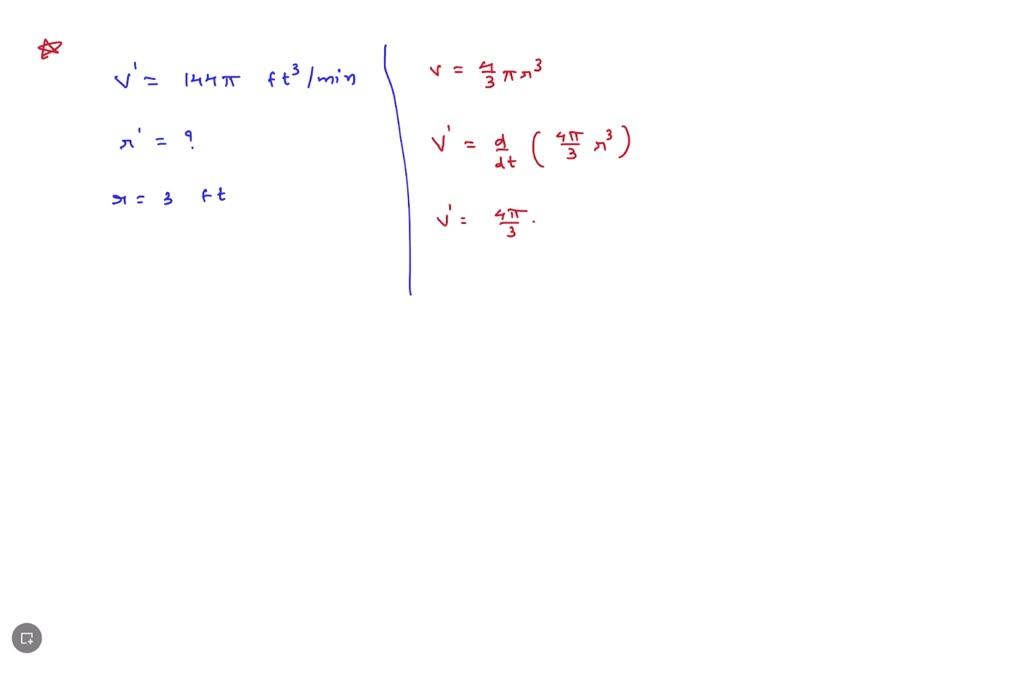 V' = 144π ft³/min
r' = ?
r = 3 ft
V = 4/3 πr³
V' = d/dt ( 4π/3 r³ )
V' = 4π/3 ·